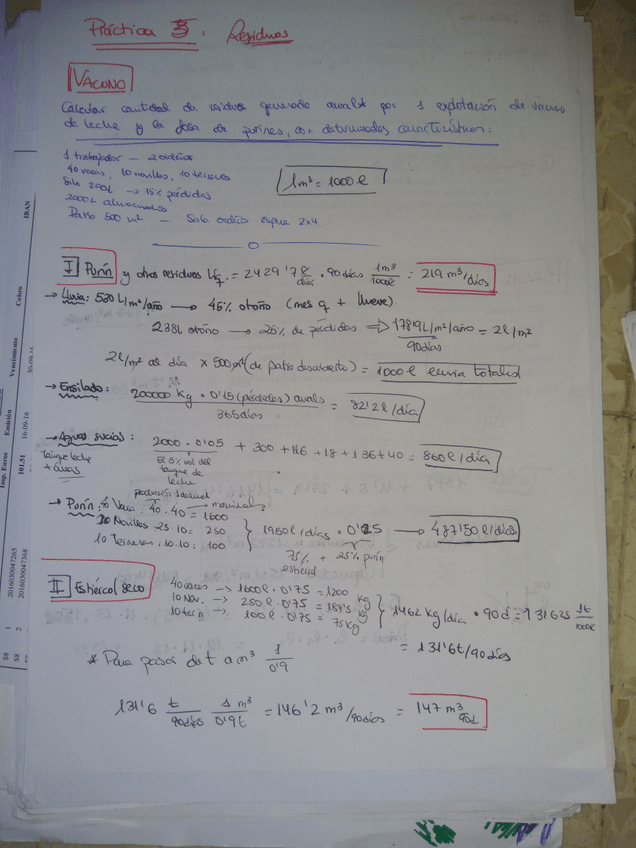 Práctica 5. Residuos
VACUNO
Calcular cantidad de residuos generado anualmt por 1 explotación de vacuno
de leche y la fosa de purines, con determinadas características:
1 trabajador — 2 ordeños
40 vacas, 10 novillos, 10 terneros
Silo 200t → 15% pérdidas
2000L almacenados
Patio 500 m² — Sala ordeño espina 2x4.
1m³ = 1000 l
I Purín y otros residuos líq. = 2429'7 l/días · 90 días 1m³/1000l = 219 m³/días
→ Lluvia: 530 L/m²/año → 45% otoño (mes q + llueve)
238L otoño → 25% de pérdidas ⇒ 178'9L/m²/año / 90días = 2l/m²
2l/m² al día x 500m² (de patio descubierto) = 1000 l lluvia totales
→ Ensilado: 200000 Kg · 0'15 (pérdidas) anuals / 365 días = 82'2 l/día
→ Aguas sucias: 2000 · 0'05 + 300 + 116 + 18 + 136 + 40 = 860 l/día
tanque leche
+ ubres
El 5% vol del
tanque de
leche
producción
→ Purín: 40 Vaca: 40 · 40 = 1600
10 Novillos 25·10 = 250
10 Terneros: 10·10 = 100
1950 l/días · 0'25 → 487'50 l/días
75% + 25% purín
estiércol
II Estiércol seco
40 vacas → 1600l · 0'75 = 1200 kg
10 Nov. → 250 l · 0'75 = 187'5 kg
10 tern → 100 l · 0'75 = 75 Kg
1462 Kg/día · 90d = 131625 1t/1000k
= 131'6t/90 días
* Para pasar de t a m³ 1/0'9
131'6 t/90días 1 m³/0'9t = 146'2 m³/90 días = 147 m³/90d
Imp. Euros Emisión Vencimiento Cobro IBAN
101,51 16-09-16
2016030047265
2016030047368
58 1
58 2